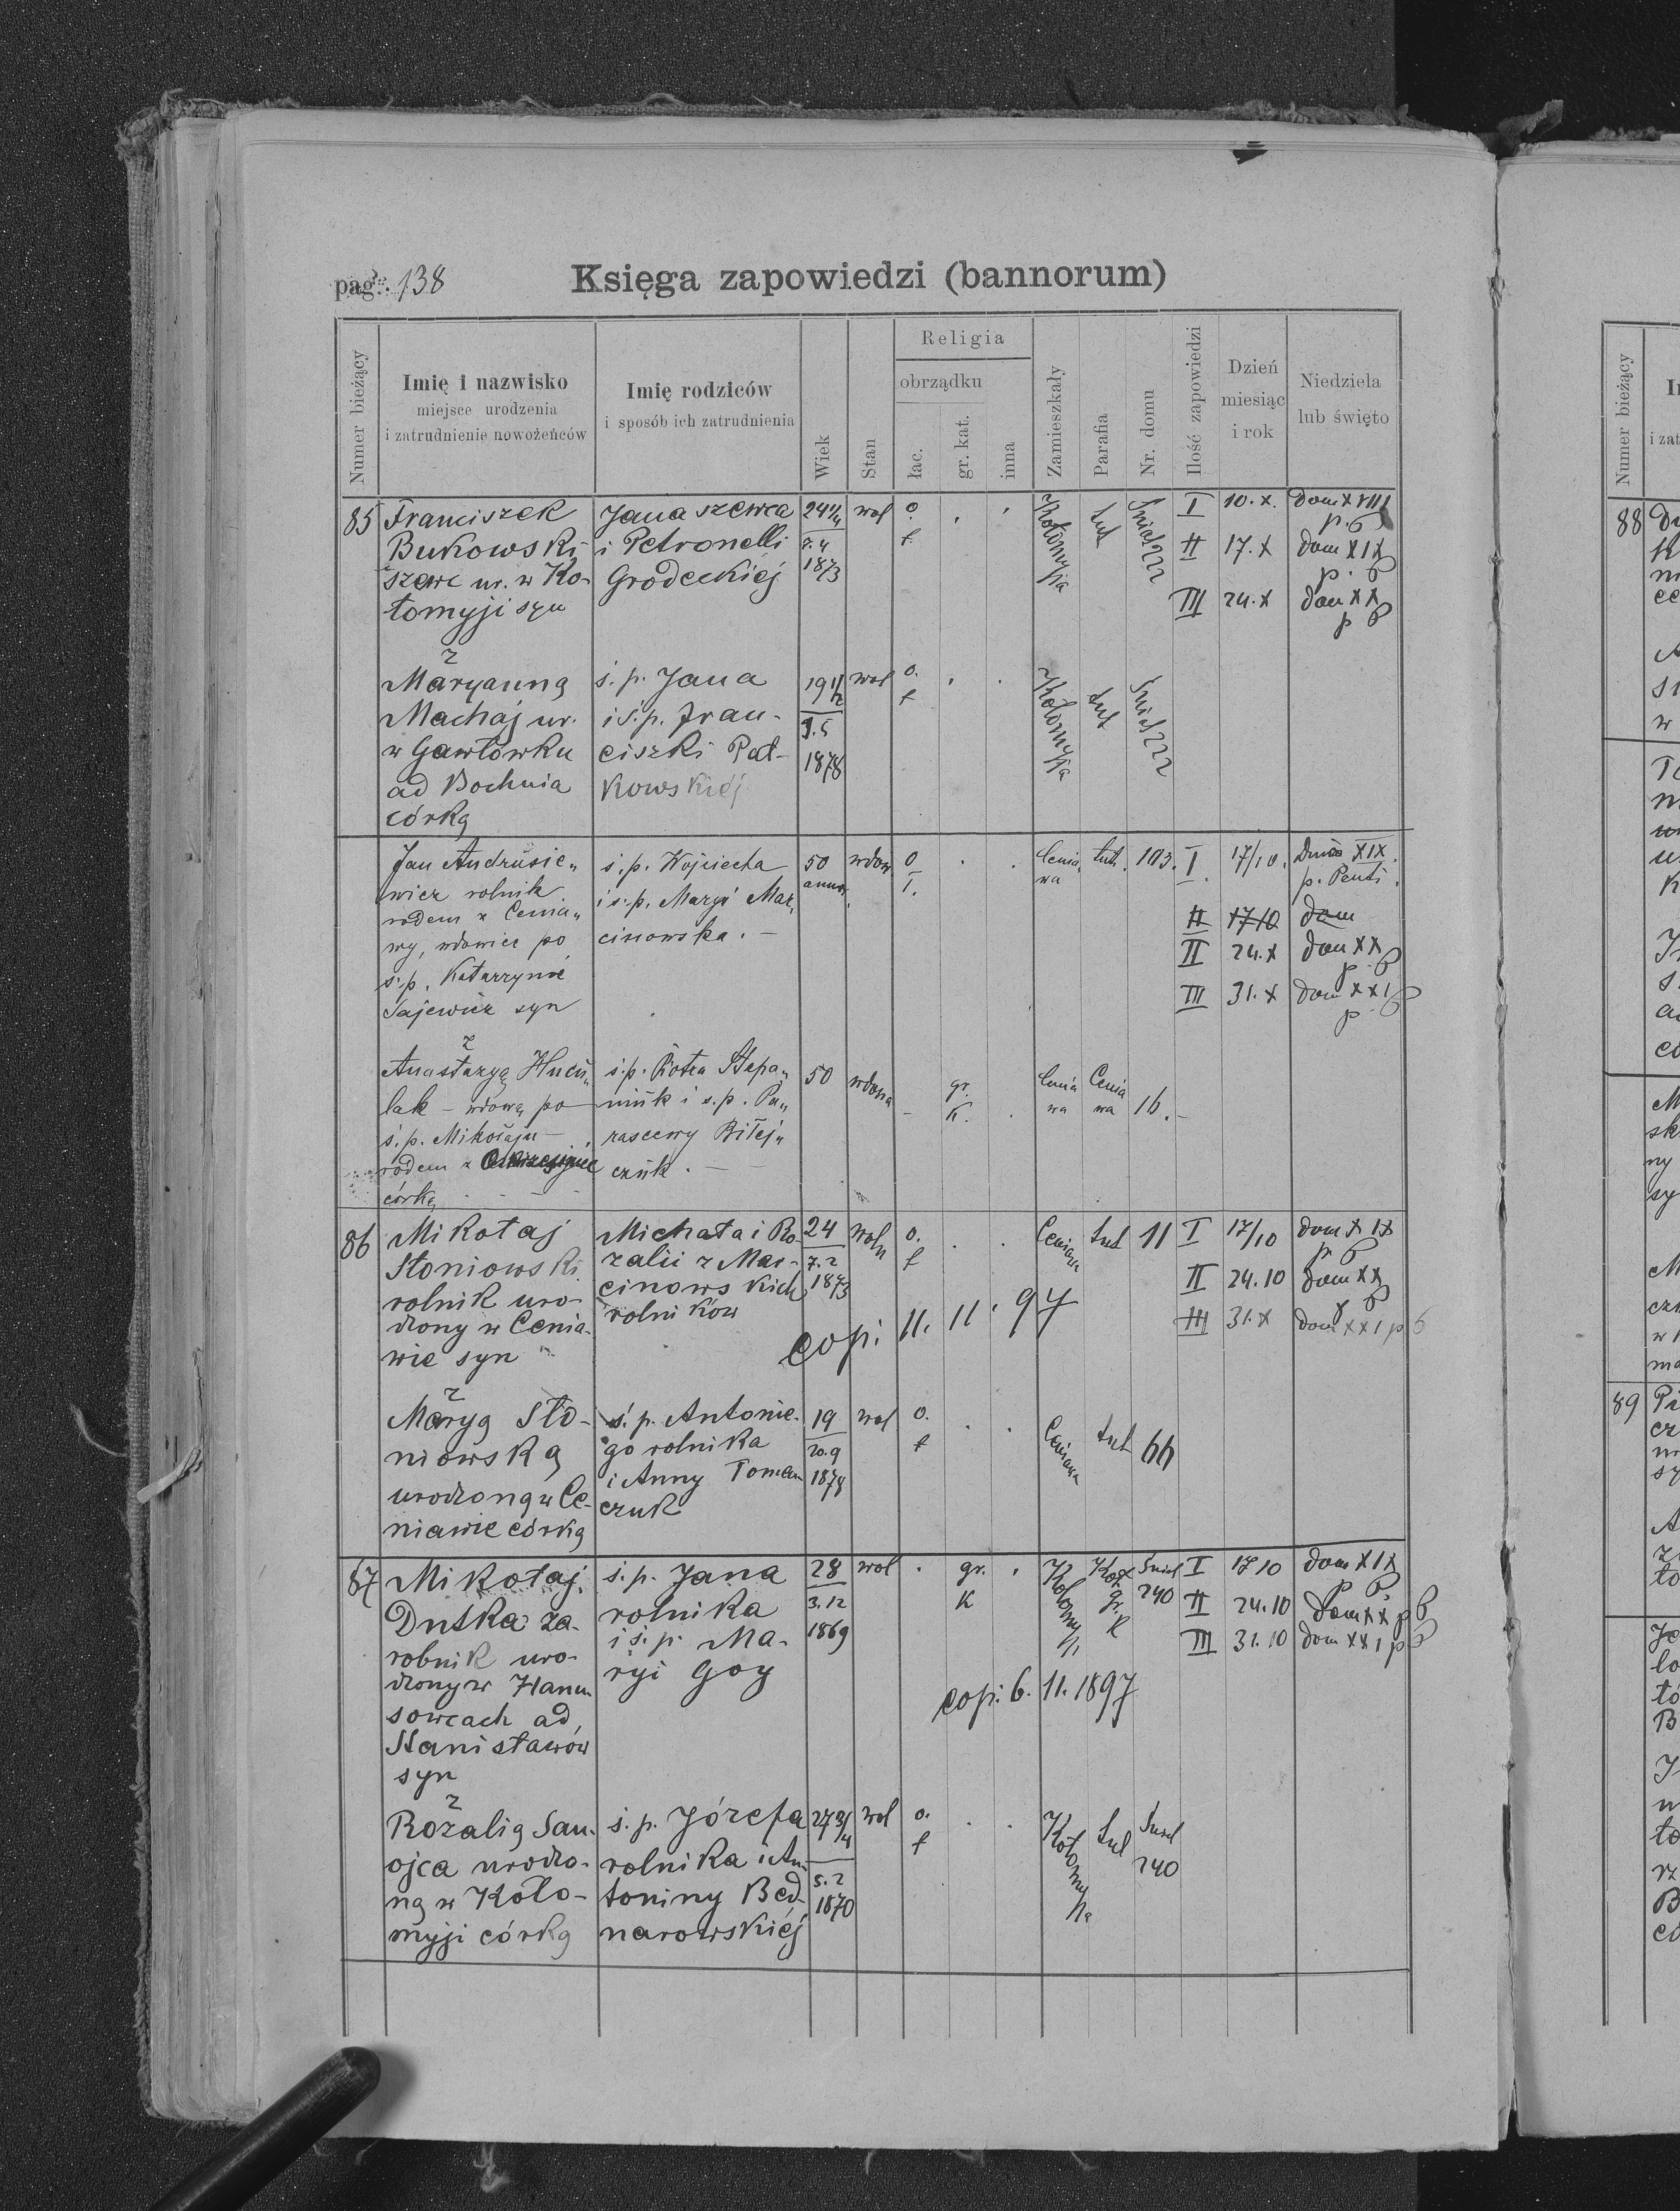 pag. 138
Księga zapowiedzi (bannorum)
Numer bieżący
Imię i nazwisko
miejsce urodzenia
i zatrudnienie nowożeńców
Imię rodziców
i sposób ich zatrudnienia
Wiek
Stan
Religia
obrządku
łac.
gr. kat.
inna
Zamieszkały
Parafia
Nr. domu
Ilość zapowiedzi
Dzień
miesiąc
i rok
Niedziela
lub święto
85
Franciszek
Bukowski
szewc ur. w Ko-
łomyji syn
Jana szewca
i Petronelli
Grodeckiéj
24 1/4
7.4
1873
wol
o.
ł.
Kołomyja
tut
Śnied 222
I 10.X. Dom XVIII
p. 6
II 17.X Dom XIX
p. 6
III 24.X Dom XX
p 6
z
Maryanną
Machaj ur.
w Gawłówku
ad Bochnia
córką
ś. p. Jana
i ś. p. Fran-
ciszki Pat-
kowskiéj
19 1/2
9.5
1878
wol
o.
ł
Kołomyja
tut
Śnied 222
Jan Andrusie„
wicz rolnik
rodem z Cenia„
wy, wdowiec po
ś. p. Katarzynie
Sajewicz syn
ś. p. Wojciecha
i ś. p. Maryi Mar„
cinowska. –
50
annor.
wdow
o
ł.
Cenia
wa
tut.
103.
I. 17/10. XIX.
p. Pent.
II 17/10 dom
II 24.X Dom XX
p. 6
III 31.X Dom XXI
p. 6
z
Anastazyą Hucu„
lak – wdową po
ś. p. Mikołaju –
rodem z
córką
ś. p. Piotra Stepa„
niuk i ś. p. Pa„
rascewy Biłej„
czuk. –
50
wdowa
gr.
K.
Cenia
wa
Cenia
wa
16. –
86
Mikołaj
Słoniowski
rolnik uro-
dzony w Cenia-
wie syn
Michała i Ro
zalii z Mar-
cinowskich
rolników
24
7.2
1873
woln
o.
ł
Ceniawa
tut
11
I 17/10 Dom XIX
p. 6
II 24.10 Dom XX
p 6
III 31.X Dom XXI p 6
cop. 11. 11. 97
z
Maryą Sło-
niowską
urodzoną w Ce-
niawie córką
ś. p. Antonie-
go rolnika
i Anny Toman
czuk
19
20.9
1878
wol
o.
ł
Ceniawa
tut
66
87
Mikołaj
Dutka za-
robnik uro-
dzony w Hanu
sowcach ad
Stanisławów
syn
ś. p. Jana
rolnika
i ś. p. Ma-
ryi Goy
28
3.12
1869
wol
gr.
K
Kołomyi
Koł
gr.
K
Śnied
240
I 17 10 Dom XIX
p 6
II 24.10 Dom XX p 6
III 31.10 Dom XXI p 6
cop. 6. 11. 1897
z
Rozalią San-
ojca urodzo-
ną w Koło-
myji córką
ś. p. Józefa
rolnika i An-
toniny Bed-
narowskiéj
27 3/4
5.2
1870
wol
o.
ł
Kołomyja
tut
Śnied
240
88
89